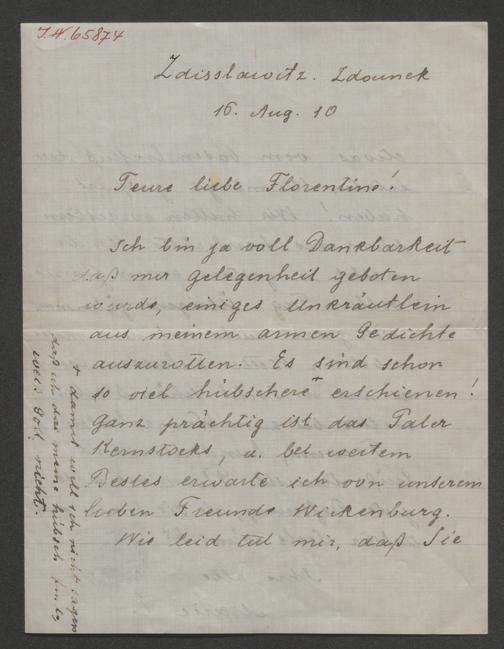 J.N. 65874
Zdisslawitz. Zdounek
16. Aug. 10
Teure liebe Florentine!
Ich bin ja voll Dankbarkeit
daß mir Gelegenheit geboten
wurde, einiges Unkräutlein
aus meinem armen Gedichte
auszurotten. Es sind schon
so viel hübschere + erschienen!
Ganz prächtig ist das
Kernstocks, u. bei weitem
Bestes erwarte ich von unserem
lieben Freunde Wickenburg.
Wie leid tut mir, daß Sie
+ damit will ich nicht sagen
daß ich das meine hübsch finde
weis Gott nicht!